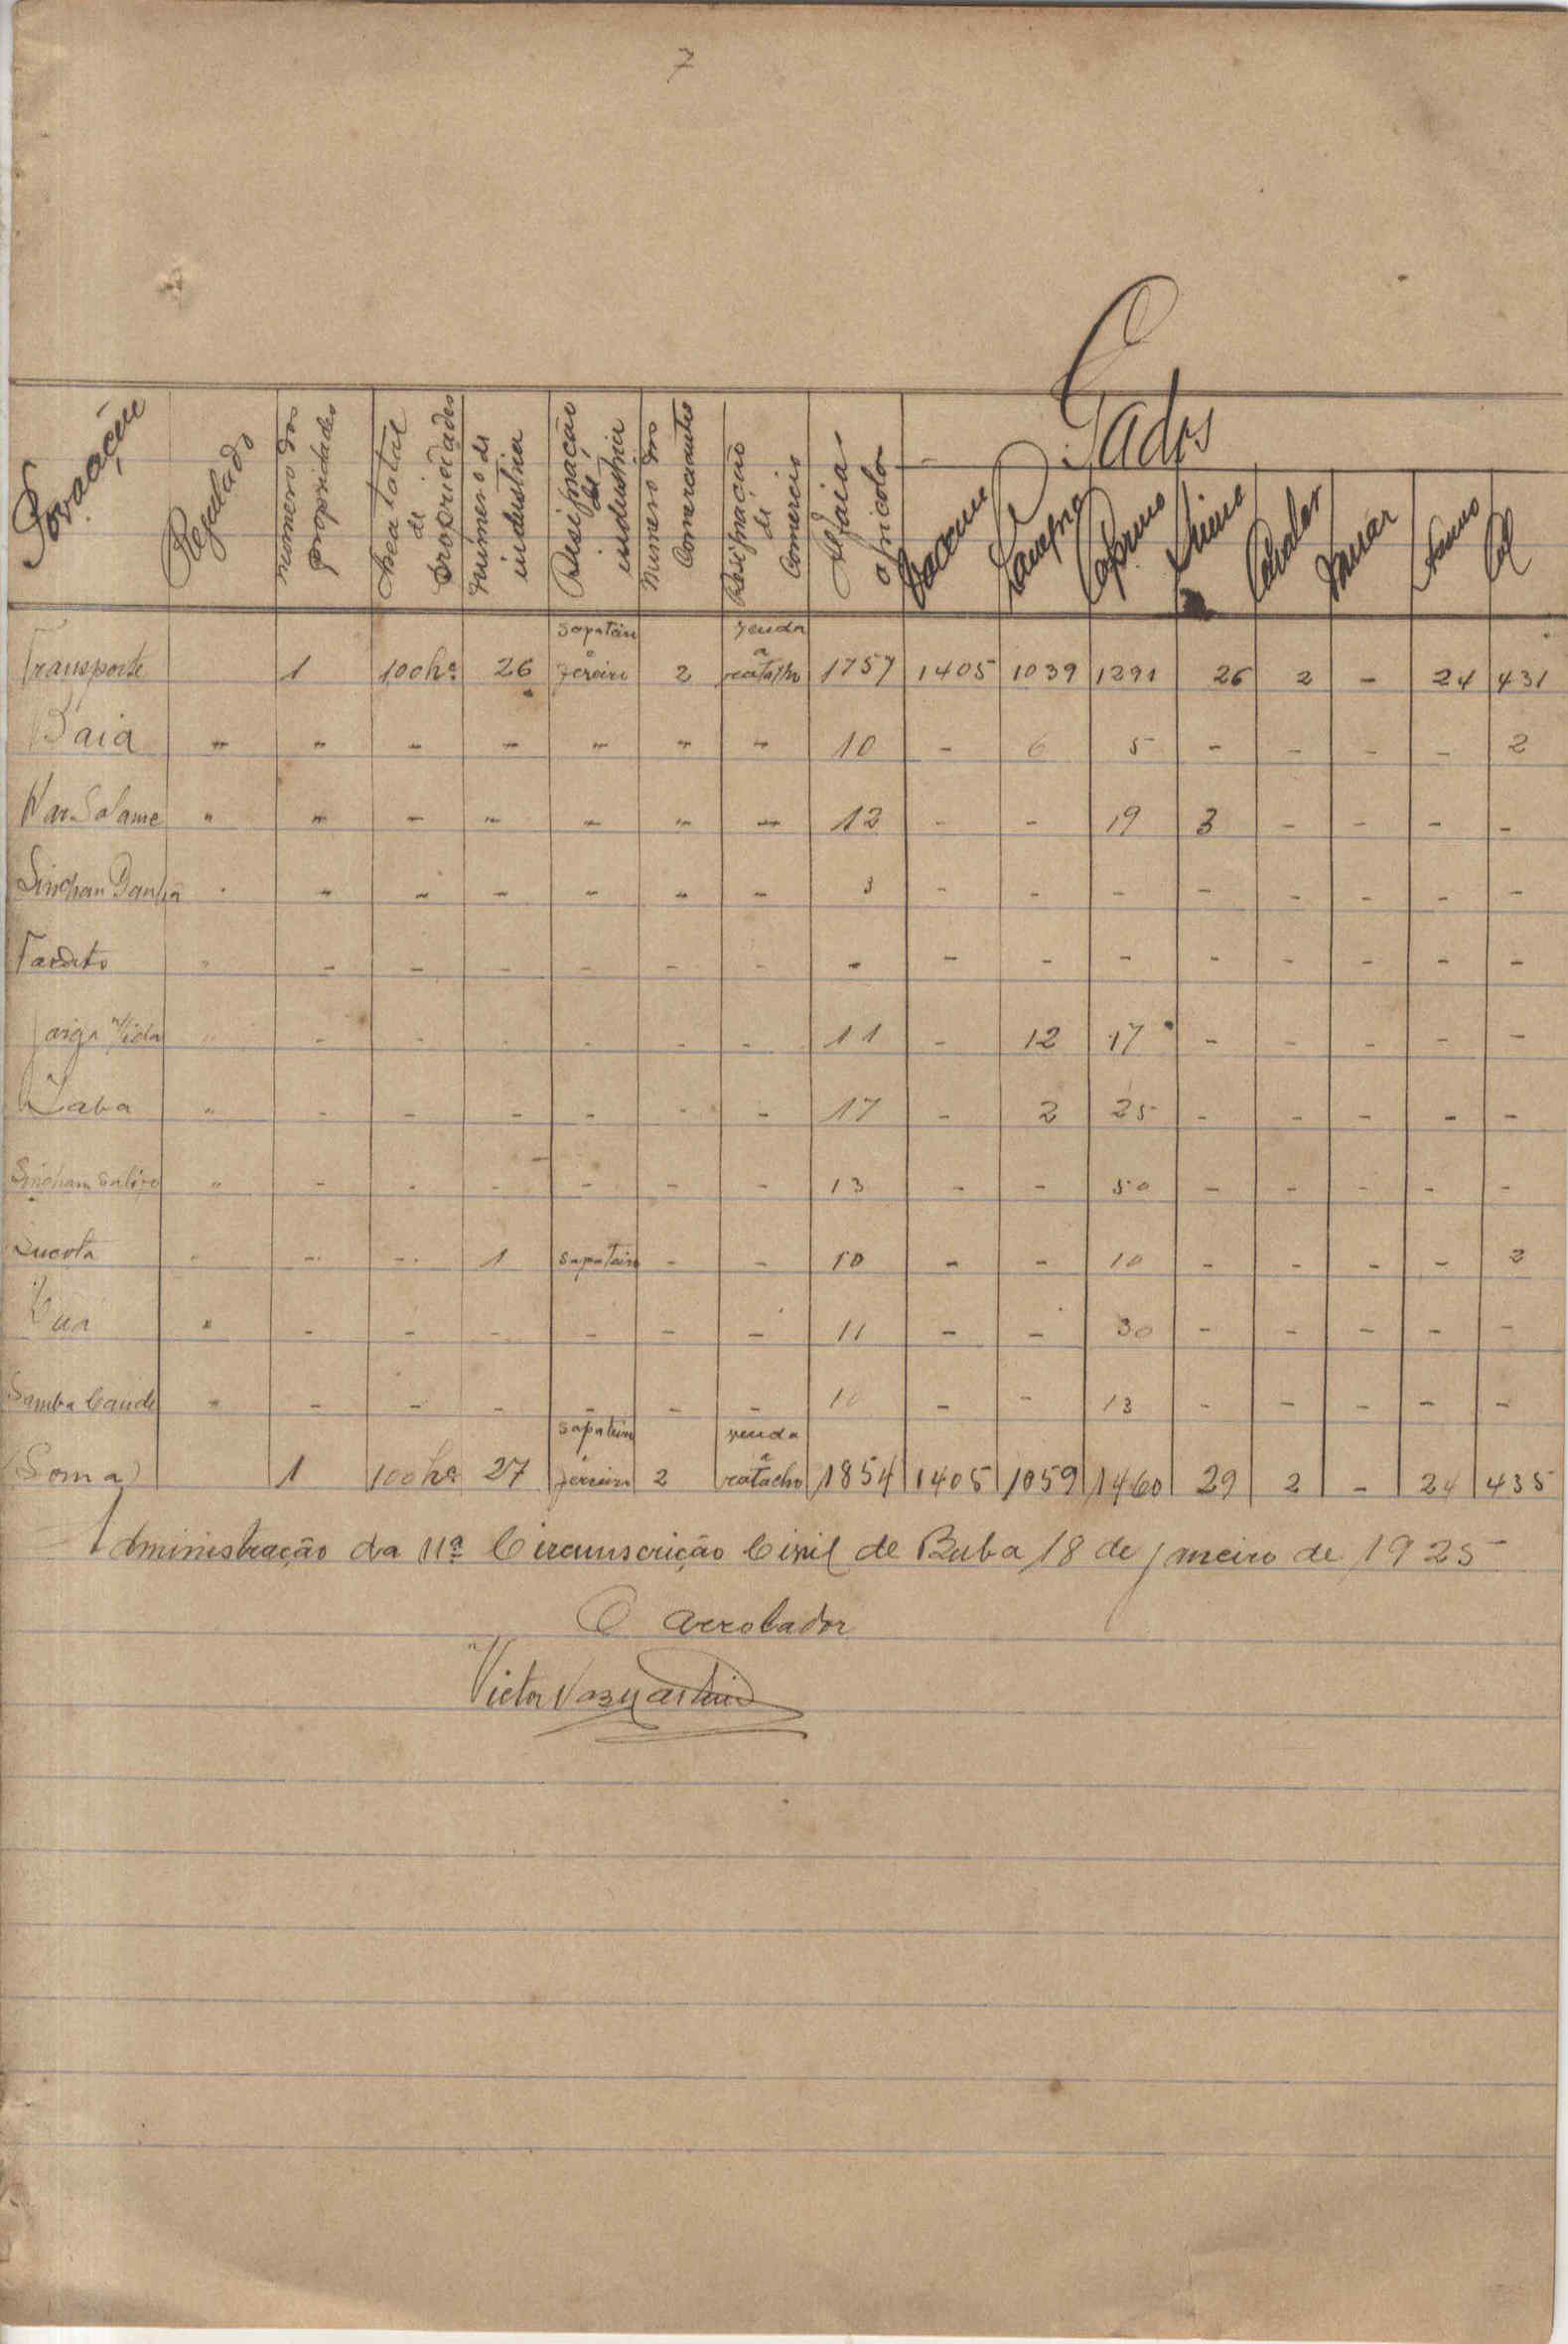 7
Gados
Povoação Regulado numero das propriedades Area total de propriedades número de industria Designação de industria Numero dos Comerciantes Designação de Comercio Alfaia agricola Vacum Lanigno Caprino Suino Cavalar Muar
Transporte 1 100 ha 26 sapateiro e ferreiro 2 venda a ratalho 1757 1405 1039 1291 26 2 - 24 431
Baia " " - " - " " 10 - 6 5 - - - - 2
War Salame " " - " - " - 12 - - 19 3 - - - -
Sinchan " - - - - - - 3 - - - - - - - -
" - - - - - - - - - - - - - - -
" - - - - - - 11 - 12 17 - - - - -
" - - - - - - 17 - 2 25 - - - - -
Sincham " - - - - - - 13 - - 50 - - - - -
" - - 1 sapateiro - - 10 - - 10 - - - - 2
" - - - - - - 11 - - 30 - - - - -
Samba " - - - - - - 10 - - 13 - - - - -
(Soma) 1 100 ha 27 sapateiro e ferreiro 2 venda a ratacho 1854 1405 1059 1460 29 2 - 24 435
Administração da 11ª Circunscrição Civil de Buba 18 de janeiro de 1925
O arrolador
Victor Vaz Martins